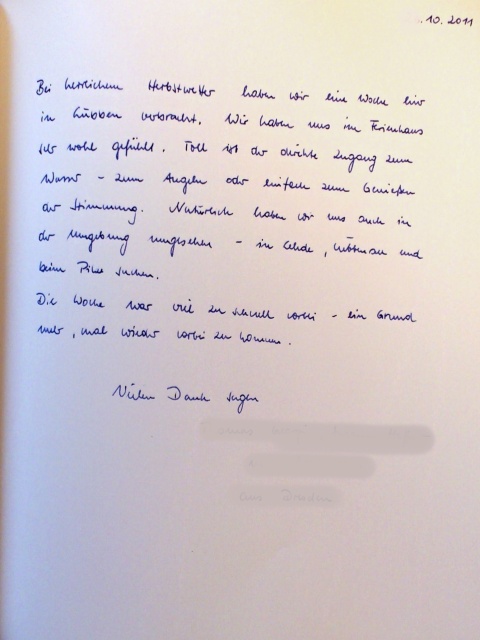 .10. 2011
Bei herrlichem Herbstwetter haben wir eine Woche hier
in Lübben verbracht. Wir haben uns im Ferienhaus
sehr wohl gefühlt. Toll ist der direkte Zugang zum
Wasser - zum Angeln oder einfach zum Genießen
der Stimmung. Natürlich haben wir uns auch in
der Umgebung umgesehen - in Lehde, Lübbenau und
beim Pilze suchen.
Die Woche war viel zu schnell vorbei - ein Grund
mehr, mal wieder vorbei zu kommen.
Vielen Dank sagen
aus Dresden